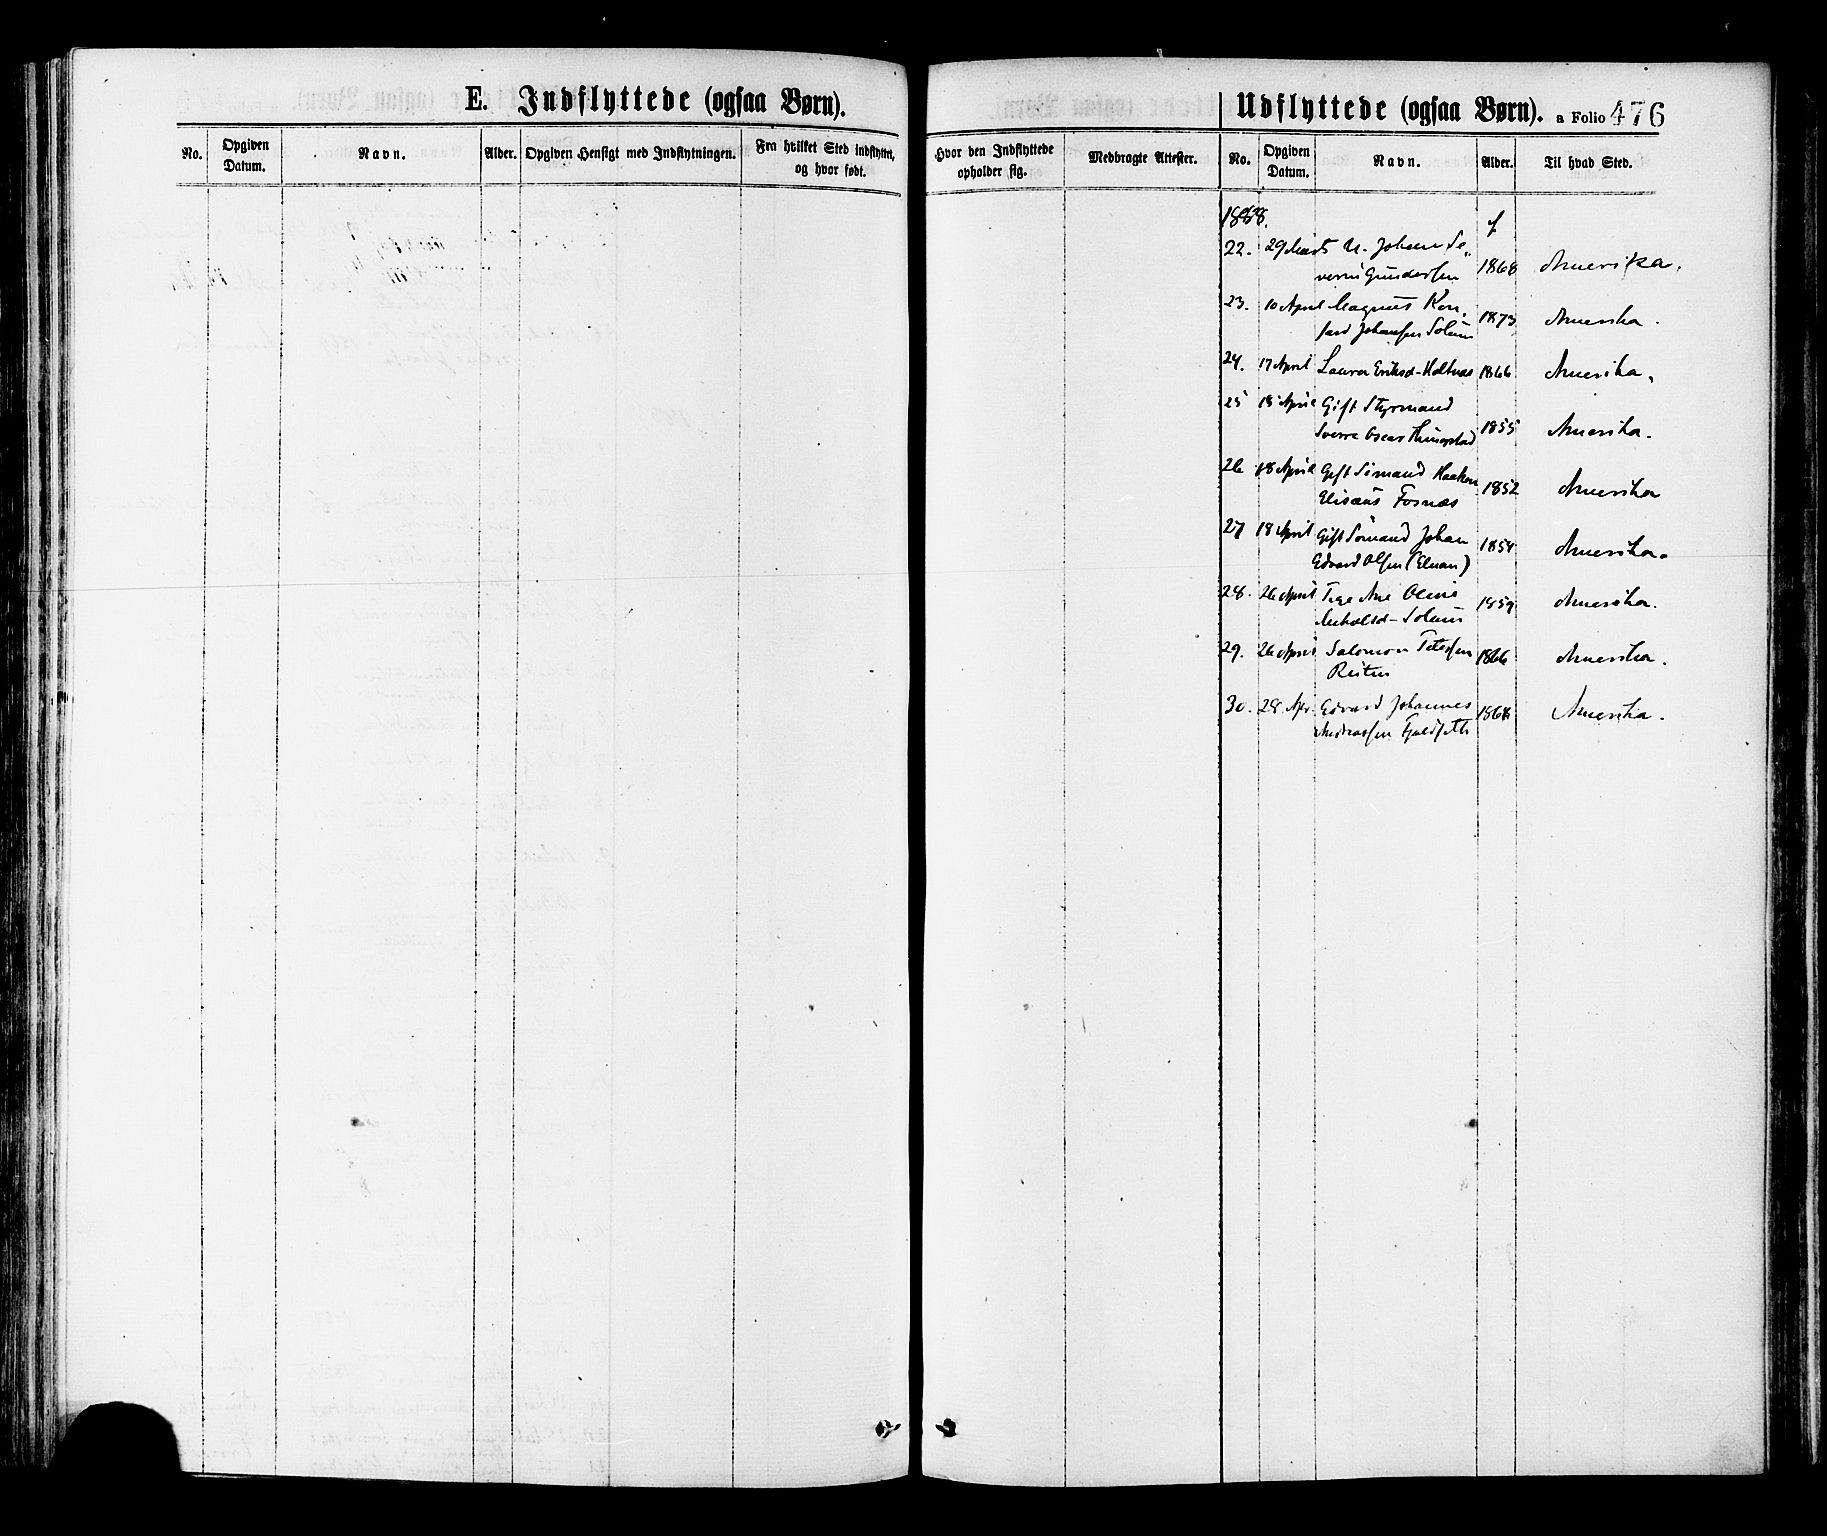 E. Indflyttede (ogsaa Børn).
No.
Opgiven
Datum.
Navn.
Alder.
Opgiven Hensigt med Indflytningen.
Fra hvilket Sted indflyttet,
og hvor født.
Hvor den Indflyttede
opholder sig.
Medbragte Attester.
Udflyttede (ogsaa Børn). a Folio 476
No.
Opgiven
Datum.
Navn.
Alder.
Til hvad Sted.
f
22. 29 Marts U. Johan Se„
verin Gundersen 1868 Amerika.
23. 10 April Magnus Kon„
rad Johansen Solum 1873 Amerika.
24. 17 April Laura Eriksd- 1866 Amerika.
25 18 April Gift Styrmand
Sverre Oscar 1855 Amerika.
26 18 April Gift Sømand Haakon
Elisæus Fosnæs 1852 Amerika
27 18 April Gift Sømand Johan
Edvard Olsen 1854 Amerika.
28. 26 April Pige Ane Oline
Solum 1859 Amerika.
29. 26 April Salomon Petersen
Reiten 1866 Amerika.
30. 28 Apr. Edvard Johannes
Andreassen Fjeldseth 1868 Amerika.